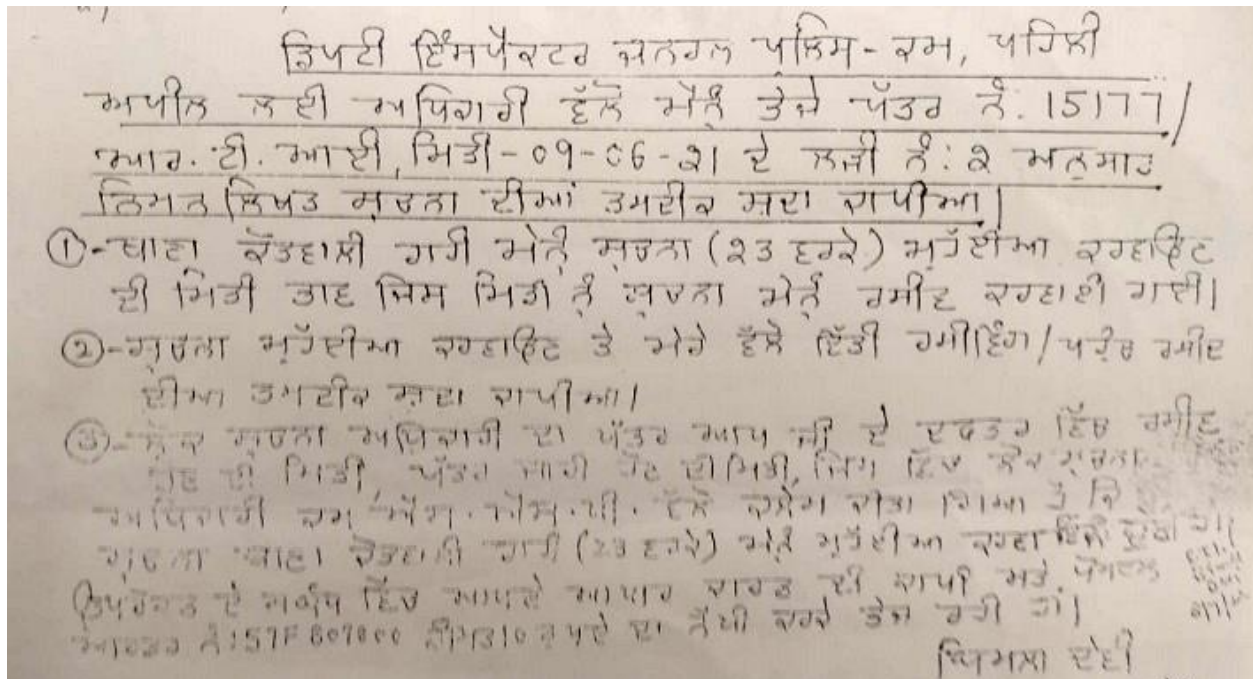 ਡਿਪਟੀ ਇੰਸਪੈਕਟਰ ਜਨਰਲ ਪੁਲਿਸ-ਕਮ, ਪਹਿਲੀ
ਅਪੀਲ ਲਈ ਅਧਿਕਾਰੀ ਵੱਲੋਂ ਮੈਨੂੰ ਭੇਜੇ ਪੱਤਰ ਨੰ. 15177/
ਆਰ. ਟੀ. ਆਈ, ਮਿਤੀ-09-06-21 ਦੇ ਲੜੀ ਨੰ: 2 ਅਨੁਸਾਰ
ਨਿਮਨ ਲਿਖਤ ਸੂਚਨਾ ਦੀਆਂ ਤਸਦੀਕ ਸ਼ੁਦਾ ਕਾਪੀਆ।
①-ਥਾਣਾ ਕੋਤਵਾਲੀ ਰਾਹੀ ਮੈਨੂੰ ਸੂਚਨਾ (23 ਵਰਕੇ) ਮੁਹੱਈਆ ਕਰਵਾਉਣ
ਦੀ ਮਿਤੀ ਭਾਵ ਜਿਸ ਮਿਤੀ ਨੂੰ ਸੂਚਨਾ ਮੈਨੂੰ ਰਸੀਵ ਕਰਵਾਈ ਗਈ।
②-ਸੂਚਨਾ ਮੁਹੱਈਆ ਕਰਵਾਉਣ ਤੇ ਮੇਰੇ ਵੱਲੋਂ ਦਿੱਤੀ ਰਸੀਵਿੰਗ/ਪਹੁੰਚ ਰਸੀਦ
ਦੀਆ ਤਸਦੀਕ ਸ਼ੁਦਾ ਕਾਪੀਆ।
③-ਲੋਕ ਸੂਚਨਾ ਅਧਿਕਾਰੀ ਦਾ ਪੱਤਰ ਆਪ ਜੀ ਦੇ ਦਫਤਰ ਵਿੱਚ ਰਸੀਵ
ਹੋਣ ਦੀ ਮਿਤੀ, ਪੱਤਰ ਜਾਰੀ ਹੋਣ ਦੀ ਮਿਤੀ, ਜਿਸ ਵਿੱਚ ਲੋਕ ਸੂਚਨਾ
ਅਧਿਕਾਰੀ ਕਮ ਐਸ.ਐਸ.ਪੀ. ਵੱਲੋਂ ਕਲੇਮ ਕੀਤਾ ਗਿਆ ਹੈ ਕਿ
ਸੂਚਨਾ ਥਾਣਾ ਕੋਤਵਾਲੀ ਰਾਹੀ (23 ਵਰਕੇ) ਮੈਨੂੰ ਮੁਹੱਈਆ ਕਰਵਾ ਦਿੱਤੀ
ਉਪਰੋਕਤ ਦੇ ਸਬੰਧ ਵਿੱਚ ਆਪਣੇ ਆਧਾਰ ਕਾਰਡ ਦੀ ਕਾਪੀ ਅਤੇ ਪੋਸਟਲ
ਆਰਡਰ ਨੰ:57F 607000 ਰੁਪਏ ਦਾ ਨੱਥੀ ਕਰਕੇ ਭੇਜ ਰਹੀ ਹਾਂ।
ਬਿਮਲਾ ਦੇਵੀ